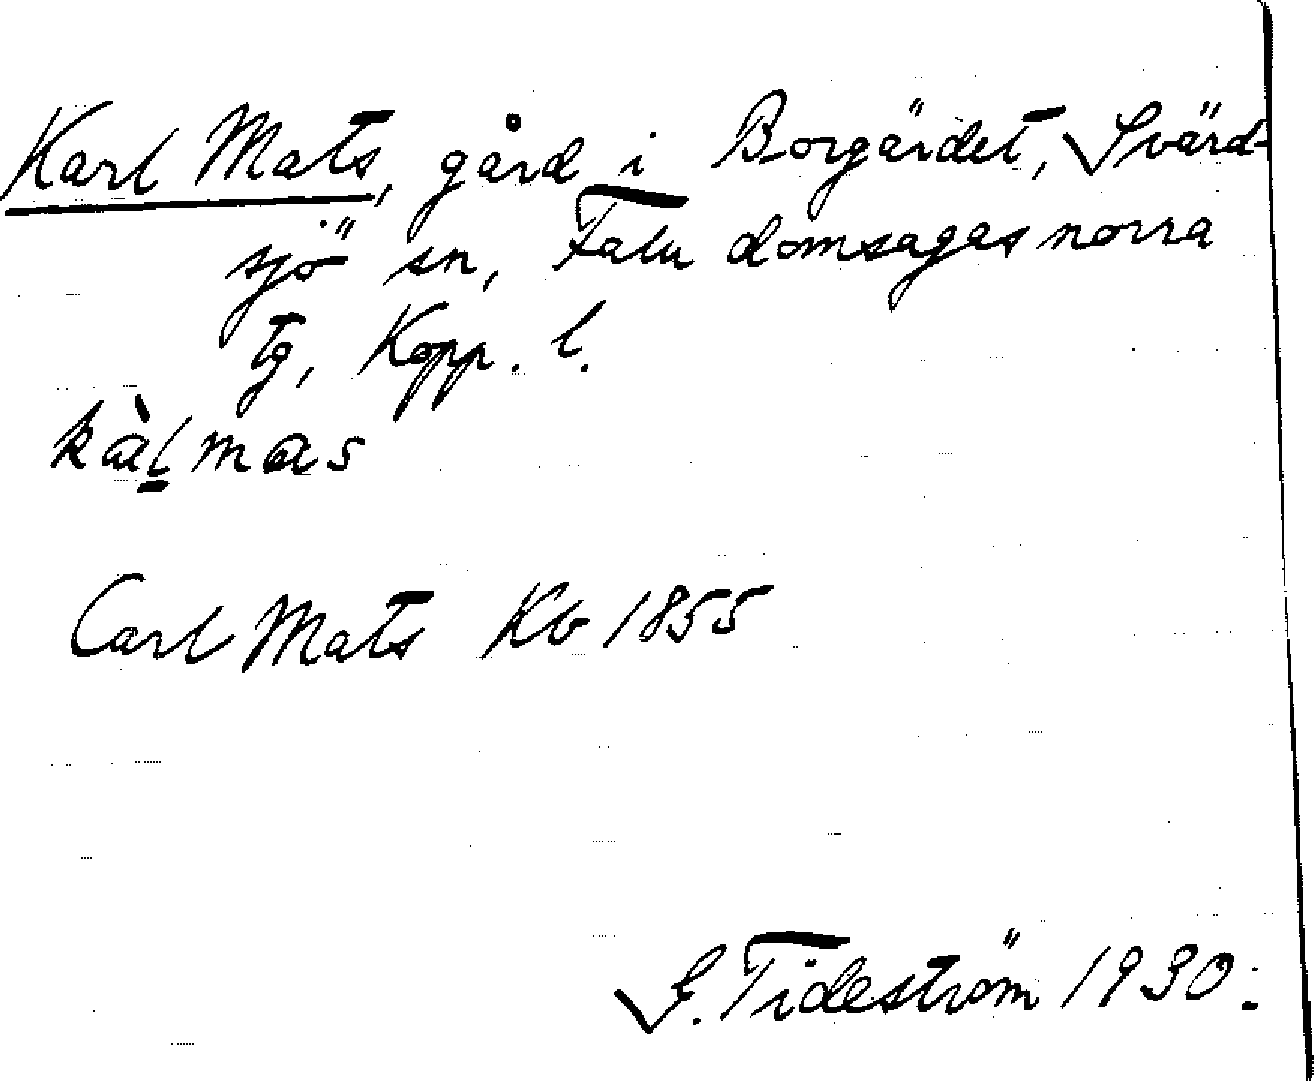 Karl Mats, gård i Borgärdet, Svärd-
sjö sn, Falu domsagas norra
tg, Kopp. l.
kàl̠mas
Carl Mats Kb 1855
G. Tideström 1930.